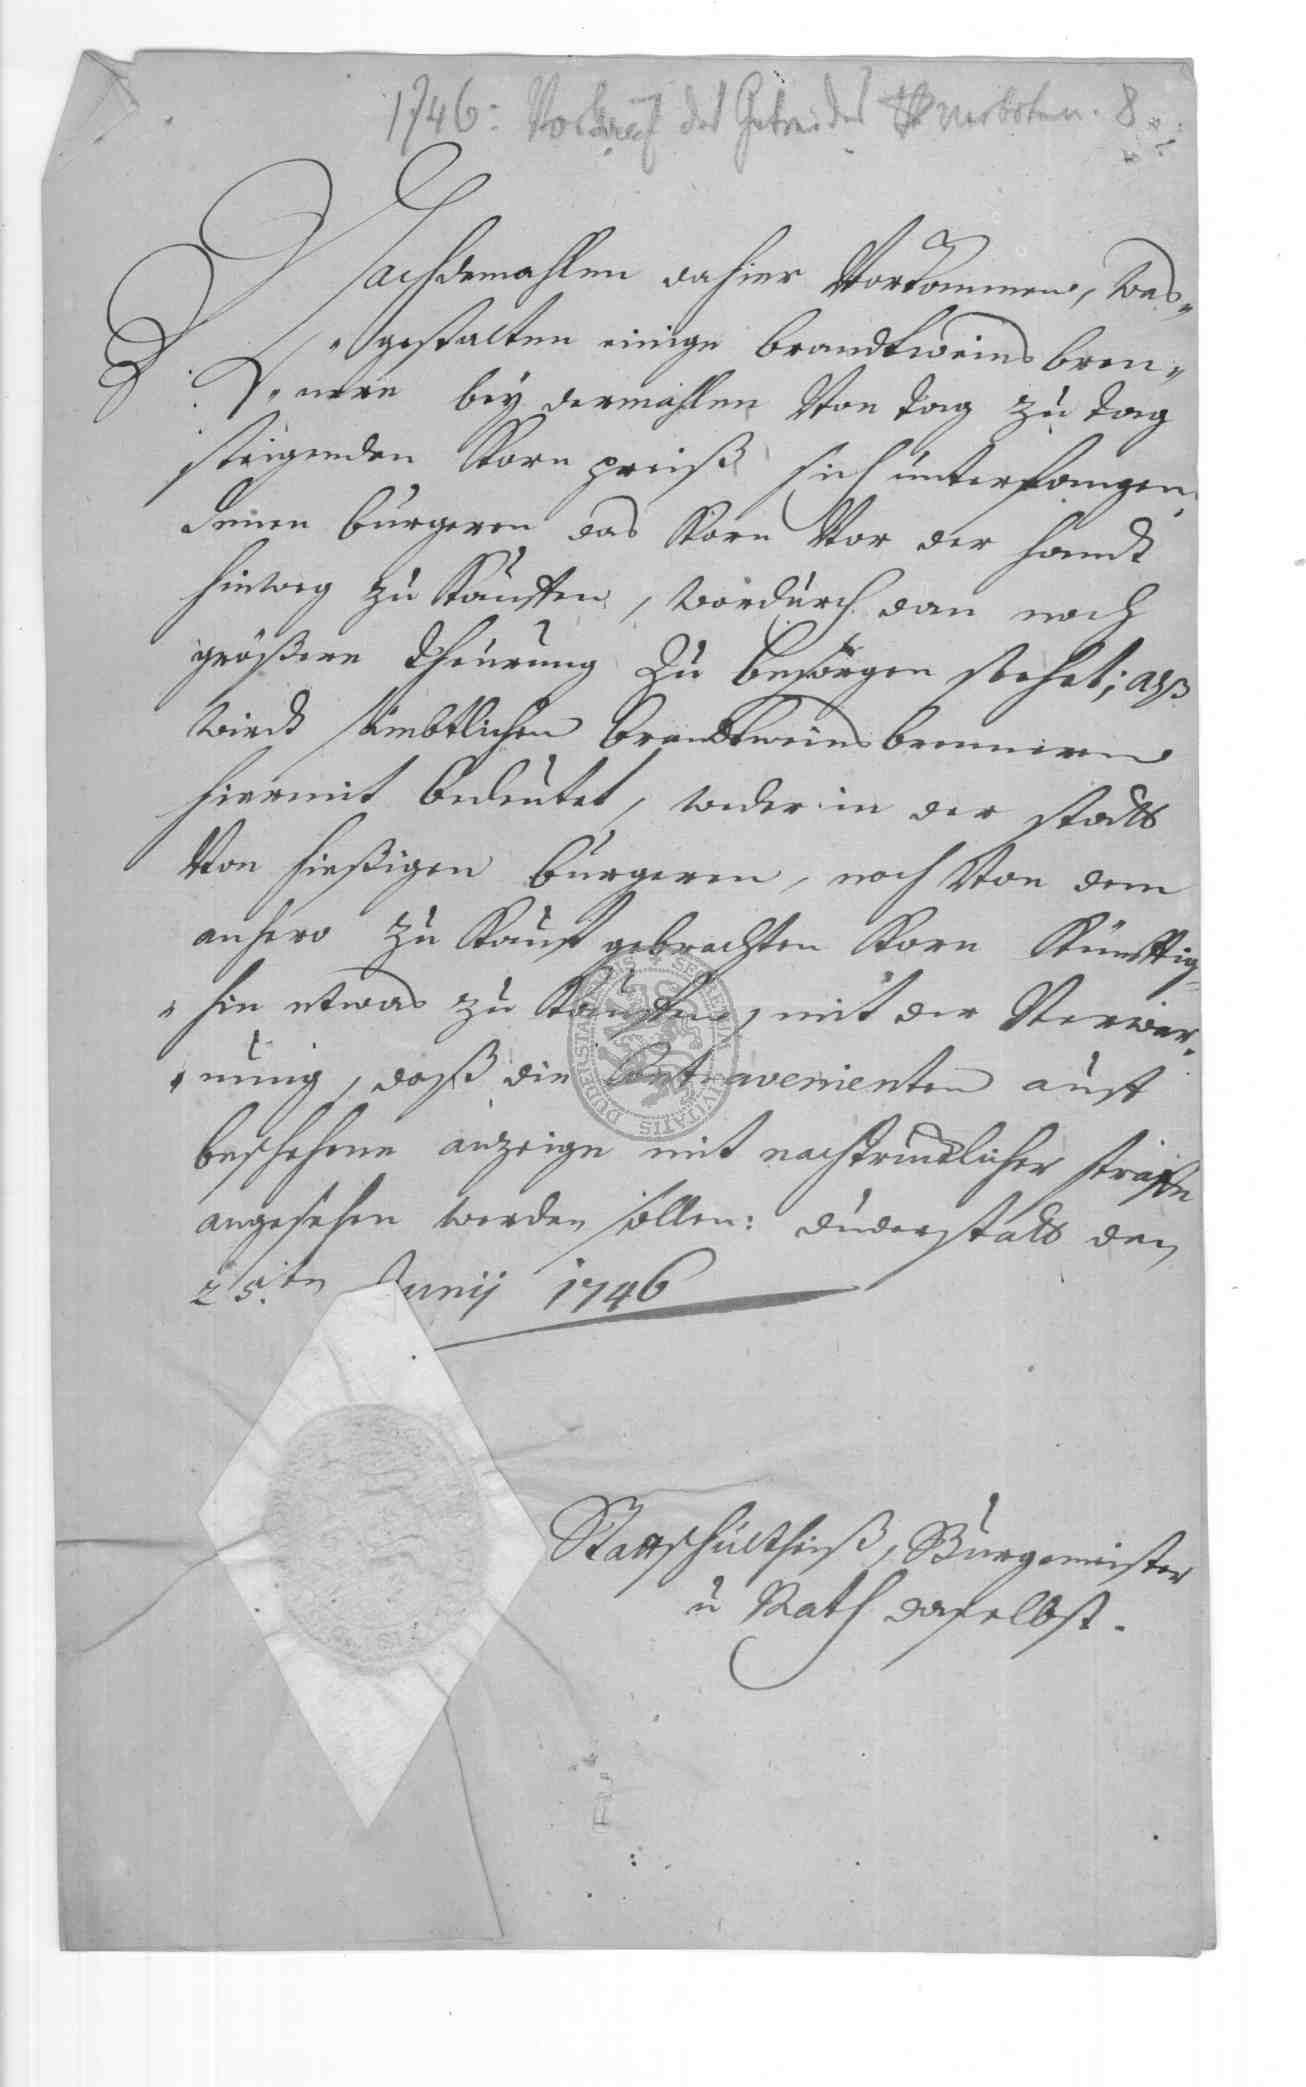 1746: Vorkauf des Getreides verboten. 8
Nachdemahlen dahier Vorkommen, was„
„gestalten einige brandtweins bren„
„nere bey dermahlen Von tag zu tag
steigenden Korn preiß sich unterfangen,
denen burgeren das Korn Vor der handt
hinweg zu Kauffen, wordurch dan noch
größere theurung Zu besorgen stehet; alß
wird sambtlichen brandtweins bennern
hiermit bedeutet, weder in der stadt
Von hießigen burgeren, noch Von dem
anhero zu Kauff gebrachten Korn Künfftig„
„hin etwas zu Kauffen, mit der Verwar„
„nung, daß die Contravenienten auff
beschehene anzeige mit nachtrucklicher straffe
angesehen werden sollen: duderstadt den
25.ten Junij 1746
Stattschultheiß, Burgemeister
u Rath daselbst.
SECRETUM CIVITATIS DUDERSTADENSIS